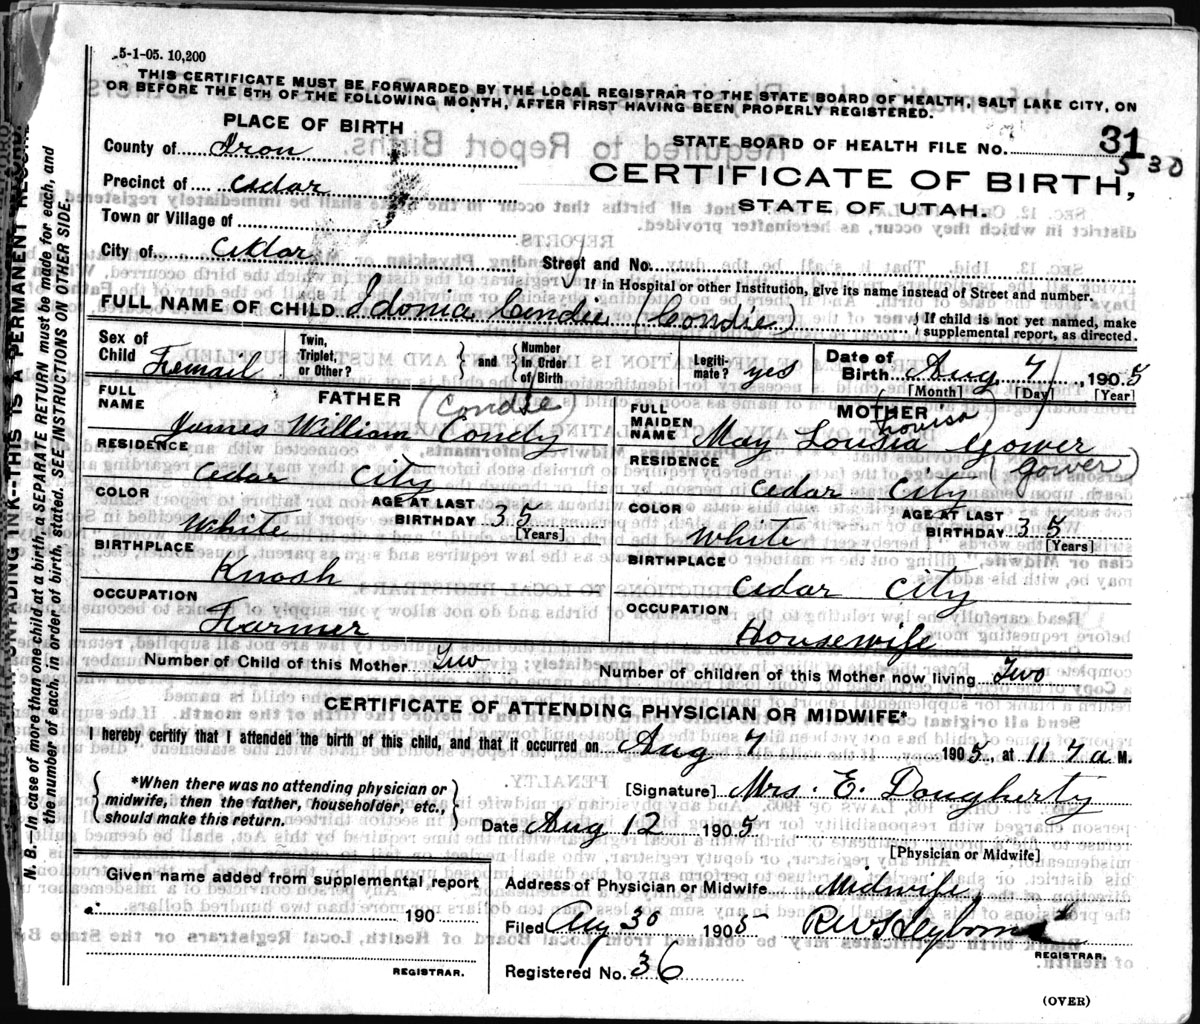 5-1-05. 10,200
THIS CERTIFICATE MUST BE FORWARDED BY THE LOCAL REGISTRAR TO THE STATE BOARD OF HEALTH, SALT LAKE CITY, ON
OR BEFORE THE 5TH OF THE FOLLOWING MONTH, AFTER FIRST HAVING BEEN PROPERLY REGISTERED.
PLACE OF BIRTH
STATE BOARD OF HEALTH FILE NO. 31
530
County of Iron
CERTIFICATE OF BIRTH,
STATE OF UTAH.
Precinct of Cedar
Town or Village of
City of Cedar
Street and No.
If in Hospital or other Institution, give its name instead of Street and number.
FULL NAME OF CHILD Idonia Condie (Condie)
{ If child is not yet named, make
supplemental report, as directed.
Sex of Child Femail
Twin, Triplet, or Other?
} and { Number in Order of Birth
Legiti-mate? yes
Date of Birth Aug 7, 1905
[Month] [Day] [Year]
FATHER
FULL NAME
(Condie)
James William Condy
RESIDENCE
Cedar City
COLOR
White
AGE AT LAST BIRTHDAY 35
[Years]
BIRTHPLACE
Knosh
OCCUPATION
Farmer
MOTHER
FULL MAIDEN NAME
(Louisa
May Lousia Gower
(Gower)
RESIDENCE
Cedar City
COLOR
White
AGE AT LAST BIRTHDAY 35
[Years]
BIRTHPLACE
Cedar City
OCCUPATION
Housewife
Number of Child of this Mother Two
Number of children of this Mother now living Two
CERTIFICATE OF ATTENDING PHYSICIAN OR MIDWIFE*
I hereby certify that I attended the birth of this child, and that it occurred on Aug 7 1905, at 11 7 a M.
{ *When there was no attending physician or
midwife, then the father, householder, etc.,
should make this return. }
[Signature] Mrs. E. Dougherty
Date Aug 12 1905
[Physician or Midwife]
Given name added from supplemental report
190
REGISTRAR.
Address of Physician or Midwife Midwife
Filed Aug 30 1905
REGISTRAR.
Registered No. 36
(OVER)
N. B.—In case of more than one child at a birth, a SEPARATE RETURN must be made for each, and
the number of each, in order of birth, stated. SEE INSTRUCTIONS ON OTHER SIDE.
UNFADING INK--THIS IS A PERMANENT RECORD